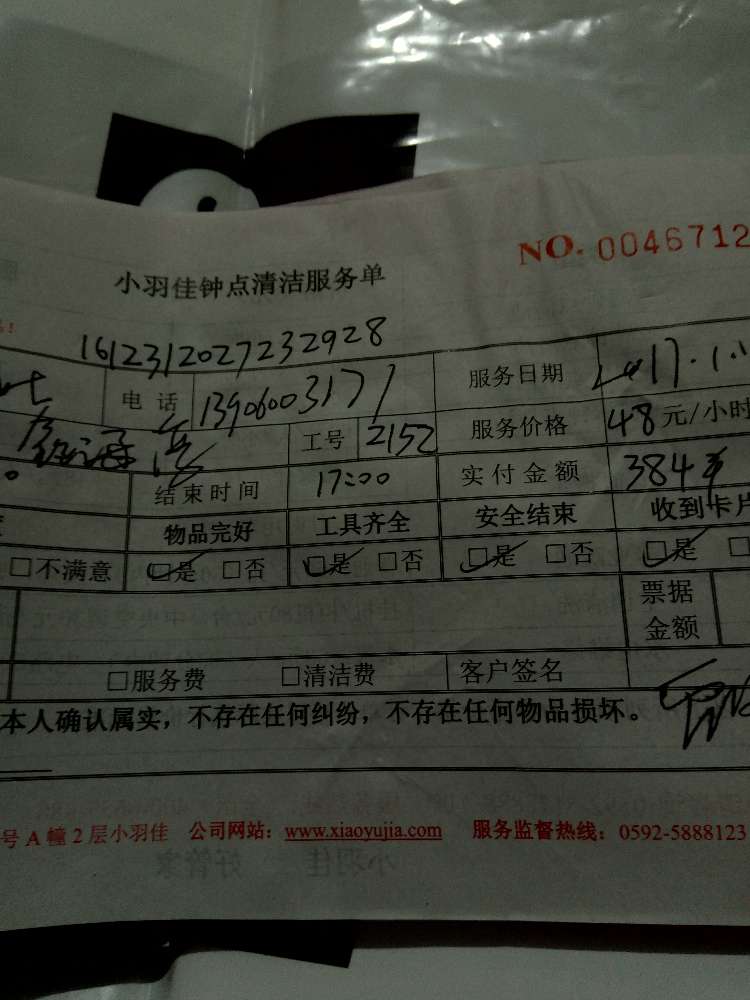 NO. 0046712
小羽佳钟点清洁服务单
1612312027232928
电话 13906003171 服务日期 2017.1.1
工号 2152 服务价格 48元/小时
结束时间 17:00 实付金额 384
物品完好 工具齐全 安全结束 收到卡片
□不满意 □是 □否 □是 □否 □是 □否 □是 □
票据金额
□服务费 □清洁费 客户签名
本人确认属实，不存在任何纠纷，不存在任何物品损坏。
号A幢2层小羽佳 公司网站：www.xiaoyujia.com 服务监督热线：0592-5888123